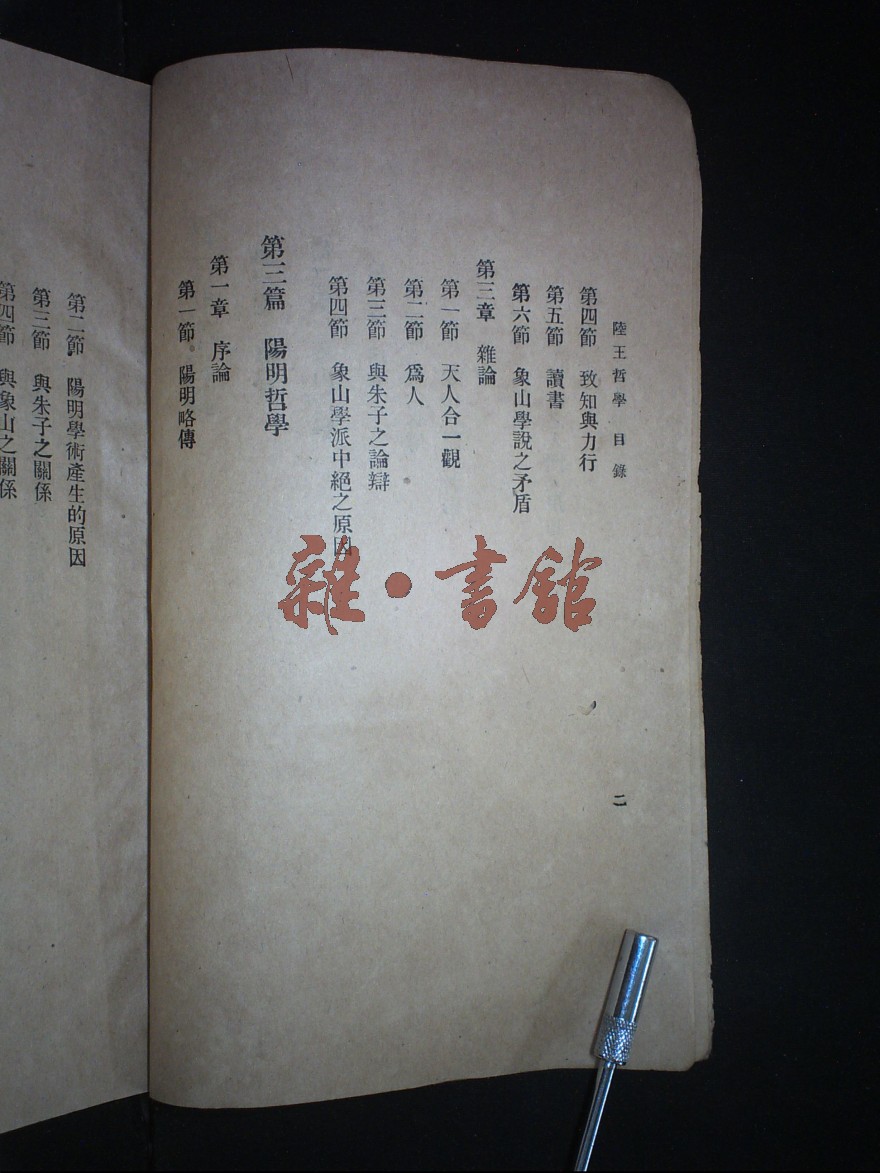 陸王哲學 目錄
第四節 致知與力行
第五節 讀書
第六節 象山學說之矛盾
第三章 雜論
第一節 天人合一觀
第二節 爲人
第三節 與朱子之論辯
第四節 象山學派中絕之原因
第三篇 陽明哲學
第一章 序論
第一節 陽明略傳
二
第二節 陽明學術產生的原因
第三節 與朱子之關係
第四節 與象山之關係
雜·書館